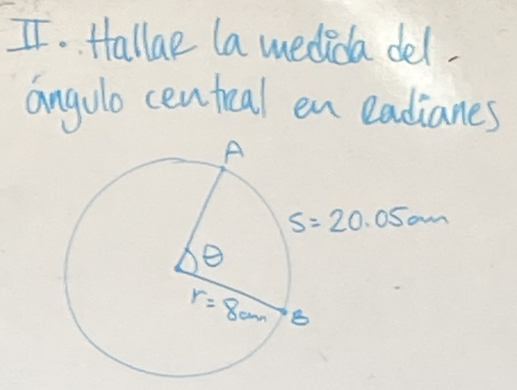 II. Hallar la medida del
ángulo central en Radianes
A
S= 20.05cm
θ
r= 8cm
B